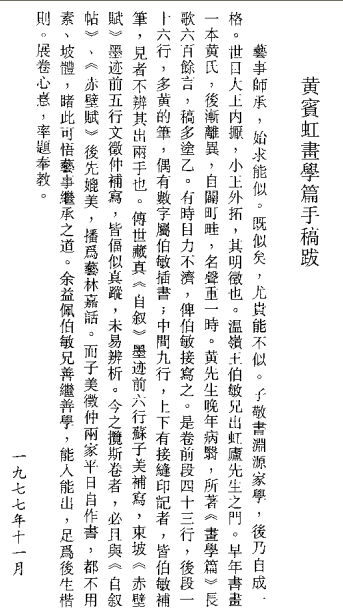 黃賓虹畫學篇手稿跋
藝事師承，始求能似。既似矣，尤貴能不似。子敬書淵源家學，後乃自成一
格。世目大王內擫，小王外拓，其明徵也。溫嶺王伯敏兄出虹廬先生之門。早年書畫
一本黃氏，後漸離異，自闢町畦，名聲重一時。黃先生晚年病翳，所著《畫學篇》長
歌六百餘言，稿多塗乙。有時目力不濟，俾伯敏接寫之。是卷前段四十三行，後段一
十六行，多黃的筆，偶有數字屬伯敏插書；中間九行，上下有接縫印記者，皆伯敏補
筆，見者不辨其出兩手也。傳世藏真《自叙》墨迹前六行蘇子美補寫，東坡《赤壁
賦》墨迹前五行文徵仲補寫，皆偪似真蹤，未易辨析。今之攬斯卷者，必且與《自叙
帖》、《赤壁賦》後先媲美，播爲藝林嘉話。而子美徵仲兩家平日自作書，都不用
素、坡體，睹此可悟藝事繼承之道。余益佩伯敏兄善繼善學，能入能出，足爲後生楷
則。展卷心憙，率題奉教。
一九七七年十一月